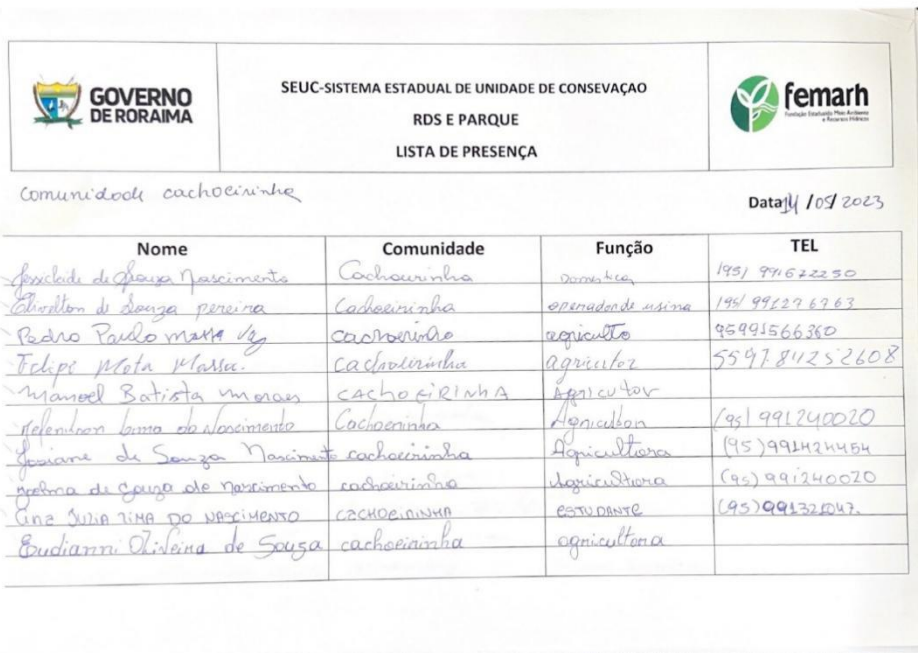 GOVERNO
DE RORAIMA
SEUC-SISTEMA ESTADUAL DE UNIDADE DE CONSEVAÇAO
RDS E PARQUE
LISTA DE PRESENÇA
femarh
Fundação Estadual do Meio Ambiente
e Recursos Hídricos
comunidade cachoeirinha
Data 14/05/2023
Nome Comunidade Função TEL
de Souza Nascimento Cachoeirinha Domestica (95) 991672250
de Souza pereira Cachoeirinha operador de usina (95) 991276763
Pedro Paulo cachoeirinho agriculto 95991566360
Felipe Mota cachoeirinha agricultor 559784252608
Manoel Batista Moraes CACHOEIRINHA Agricutor
Lima do Nascimento Cachoeirinha Agricultor (95) 991240020
Josiane de Souza Nascimento cachoeirinha Agricultora (95)991424454
de Souza de nascimento cachoeirinha Agricultora (95) 991240020
Ana JULIA LIMA DO NASCIMENTO CACHOEIRINHA ESTUDANTE (95)991321047.
Eudianni Oliveira de Souza cachoeirinha agricultora